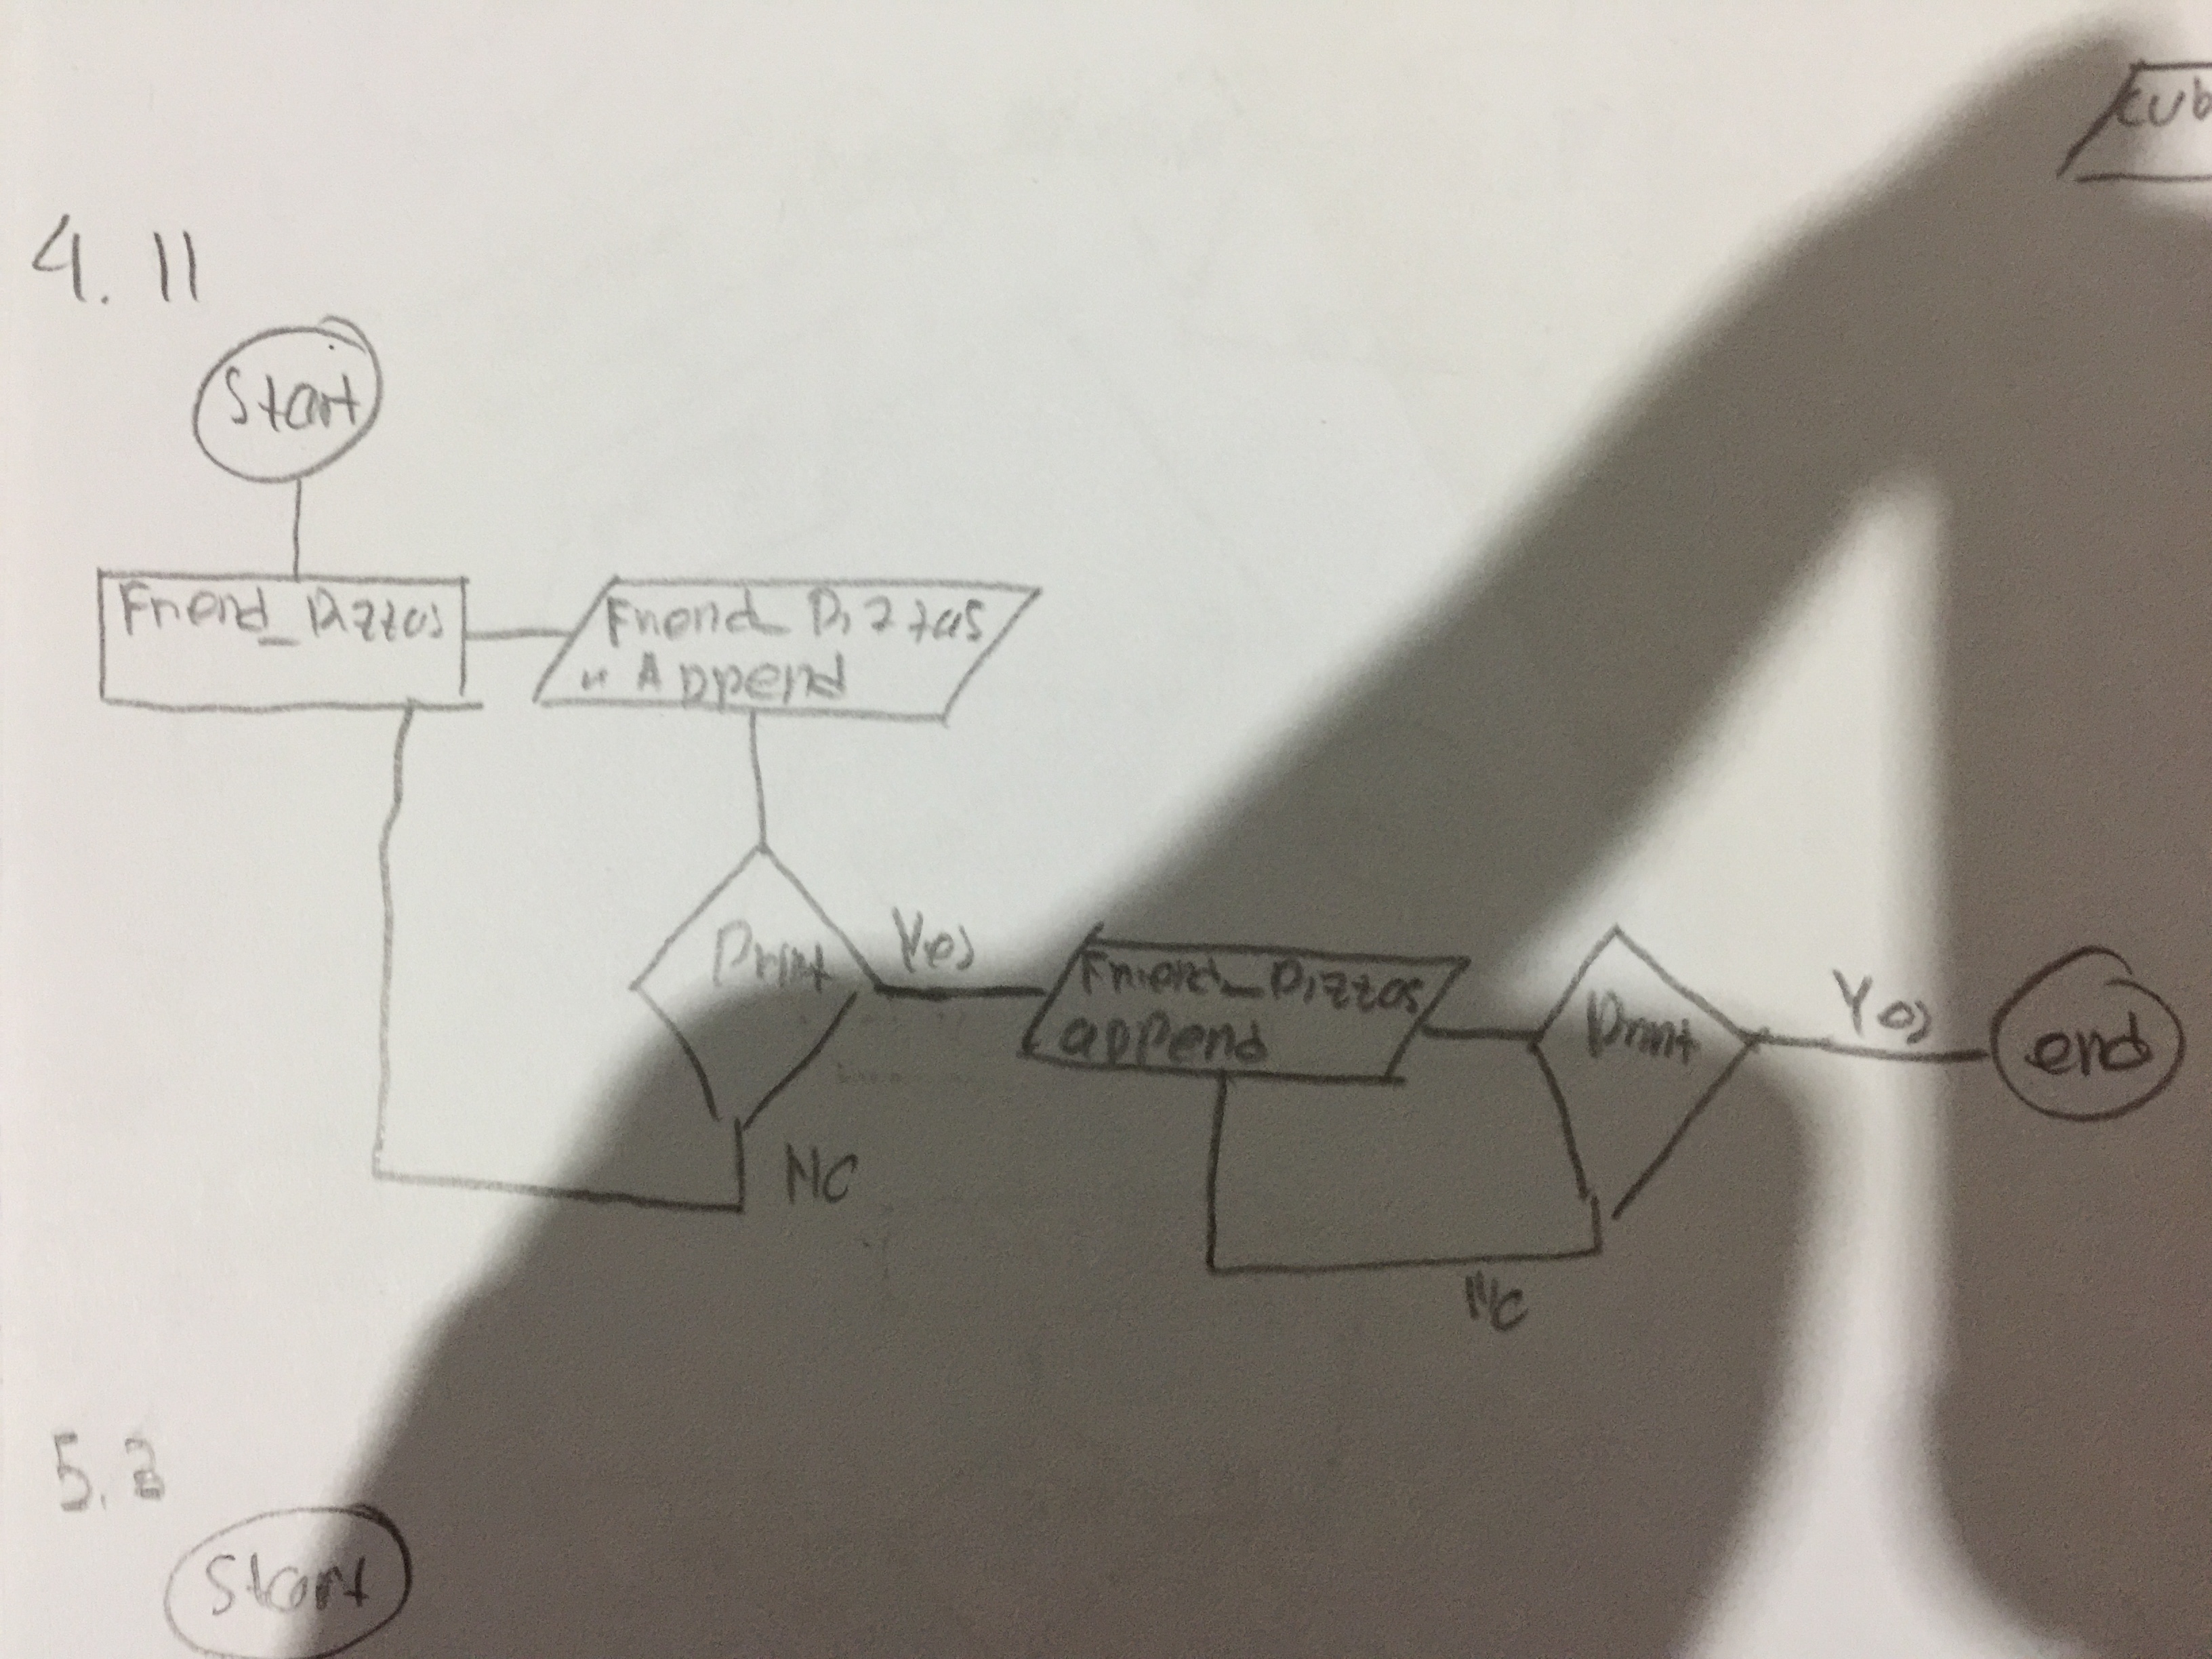 4.11
Start
Friend_Pizzas
Friend_Pizzas
" Append
Print
Yes
No
Friend_Pizzas
append
Print
No
Yes
end
5.2
Start